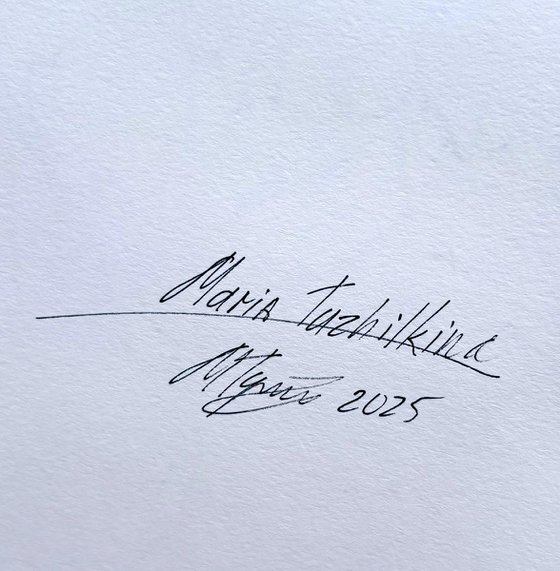 Maria Tuzhilkina
2025